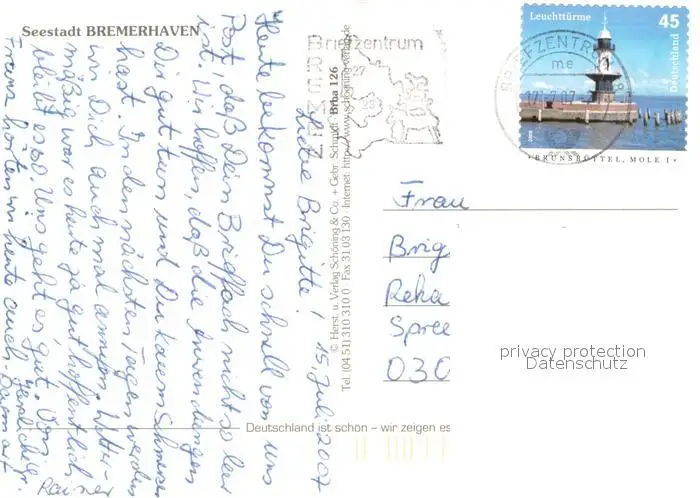 Seestadt BREMERHAVEN
15. Juli 2007
Liebe Brigitte!
Heute bekommst Du schnell von uns
Post, daß Dein Brieffach nicht so leer
ist. Wir hoffen, daß die Anwendungen
Dir gut tun und Du kaum Schmerzen
hast. In den nächsten Tagen werden
wir Dich auch mal anrufen. Wetter-
mäßig war es heute ja gut, hoffentlich
bleibt es so. Uns geht es gut. Von
hörten wir heute auch.
Rainer
© Herst. u. Verlag Schöning & Co. + Gebr. Schmidt Brha 126
Tel. (04 51) 310 310 0 · Fax 31 03 130 · Internet: http://www.schoening-verlag.de
Briefzentrum
27
23
Leuchttürme
45
Deutschland
BRIEFZENTRUM
BRUNSBÜTTEL, MOLE 1
Frau
Brig
Reha
Spree
030
privacy protection
Datenschutz
Deutschland ist schön – wir zeigen es